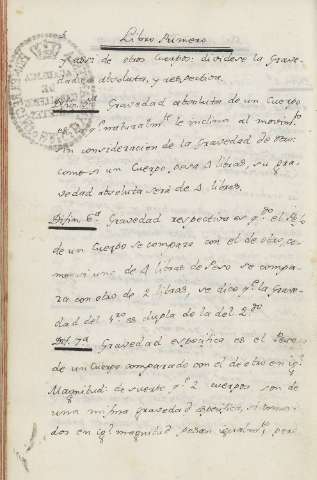 Libro Primero
de otros Cuerpos: dividese la Grave-
dad en absoluta, y respectiva.
Gravedad absoluta de un Cuerpo
es naturalmte le inclina al movimto
sin consideracion de la Gravedad de otro:
como si un Cuerpo, pesa 4 libras, su gra-
vedad absoluta será de 4 libras.
Difin. 6a Gravedad respectiva es qdo el Peso
de un Cuerpo se compara con el de otro, co-
mo si uno de 4 libras de Peso se compa-
ra con otro de 2 libras, se dice qe la Grave-
dad del 1ro es dupla de la del 2do
Def. 7a Gravedad especifica es el Peso
de un Cuerpo comparado con el de otro en igl
Magnitud: de suerte qe 2 cuerpos son de
una misma gravedad especifica, si toma-
dos en igl magnitud pesan igualmte, pero